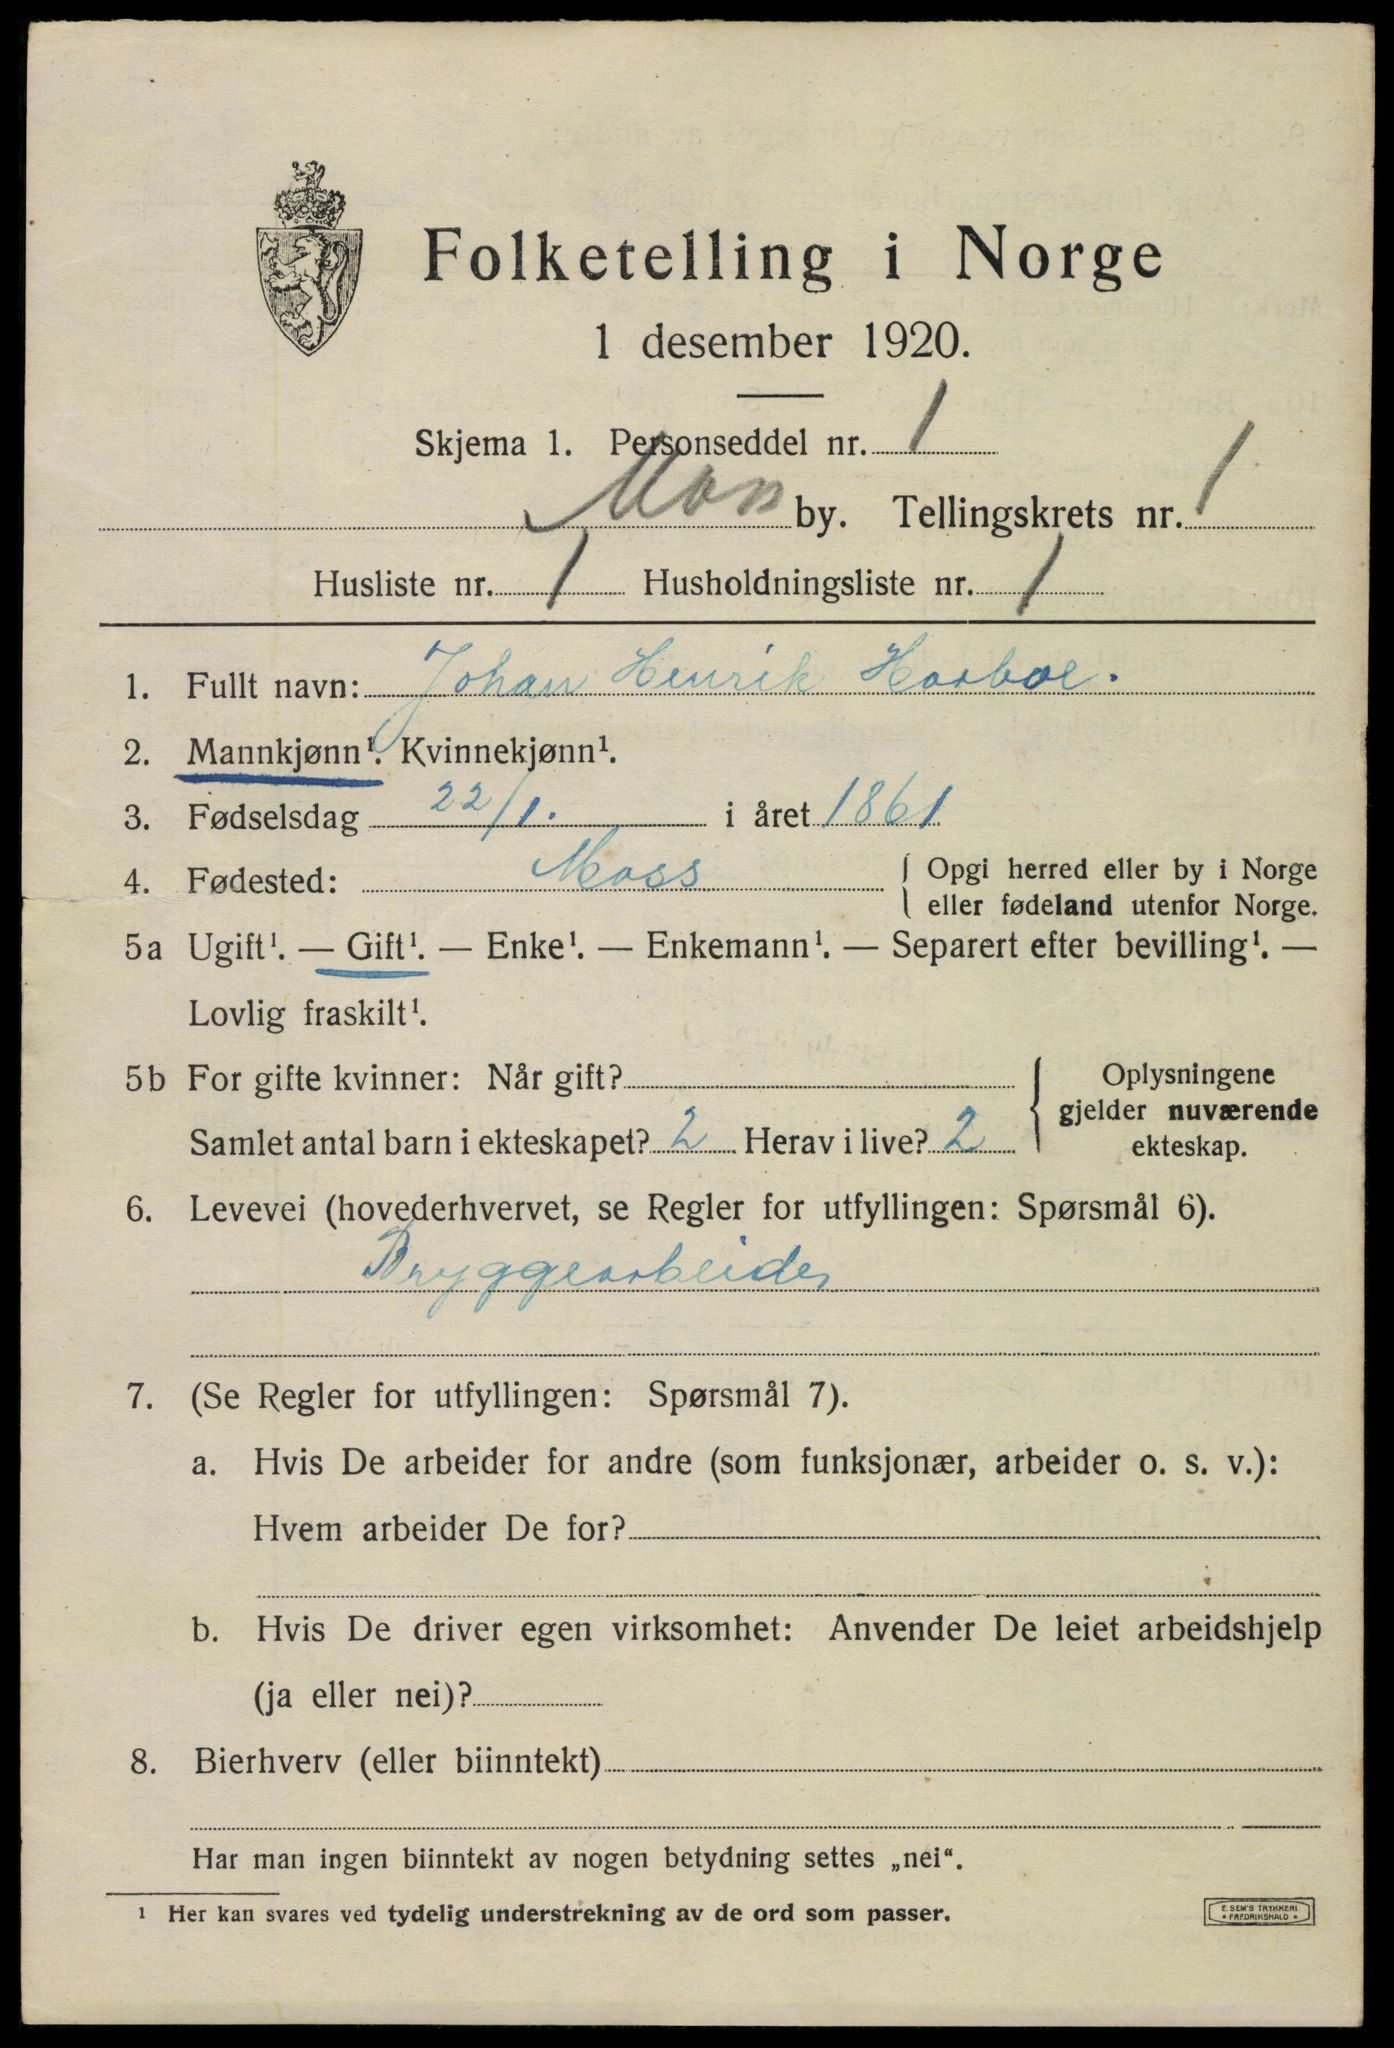 Folketelling i Norge
1 desember 1920.
Skjema 1. Personseddel nr. 1
Moss by. Tellingskrets nr. 1
Husliste nr. 1 Husholdningsliste nr. 1
1. Fullt navn: Johan Henrik Harboe.
2. Mannkjønn¹. Kvinnekjønn¹.
3. Fødselsdag 22/1. i året 1861
4. Fødested: Moss { Opgi herred eller by i Norge
eller fødeland utenfor Norge.
5a Ugift¹. — Gift¹. — Enke¹. — Enkemann¹. — Separert efter bevilling¹. —
Lovlig fraskilt¹.
5b For gifte kvinner: Når gift? { Oplysningene
gjelder nuværende
ekteskap.
Samlet antal barn i ekteskapet? 2 Herav i live? 2
6. Levevei (hovederhvervet, se Regler for utfyllingen: Spørsmål 6).
Bryggearbeider
7. (Se Regler for utfyllingen: Spørsmål 7).
a. Hvis De arbeider for andre (som funksjonær, arbeider o. s. v.):
Hvem arbeider De for?
b. Hvis De driver egen virksomhet: Anvender De leiet arbeidshjelp
(ja eller nei)?
8. Bierhverv (eller biinntekt)
Har man ingen biinntekt av nogen betydning settes „nei“.
¹ Her kan svares ved tydelig understrekning av de ord som passer.
E. SEM'S TRYKKERI
• FREDRIKSHALD •